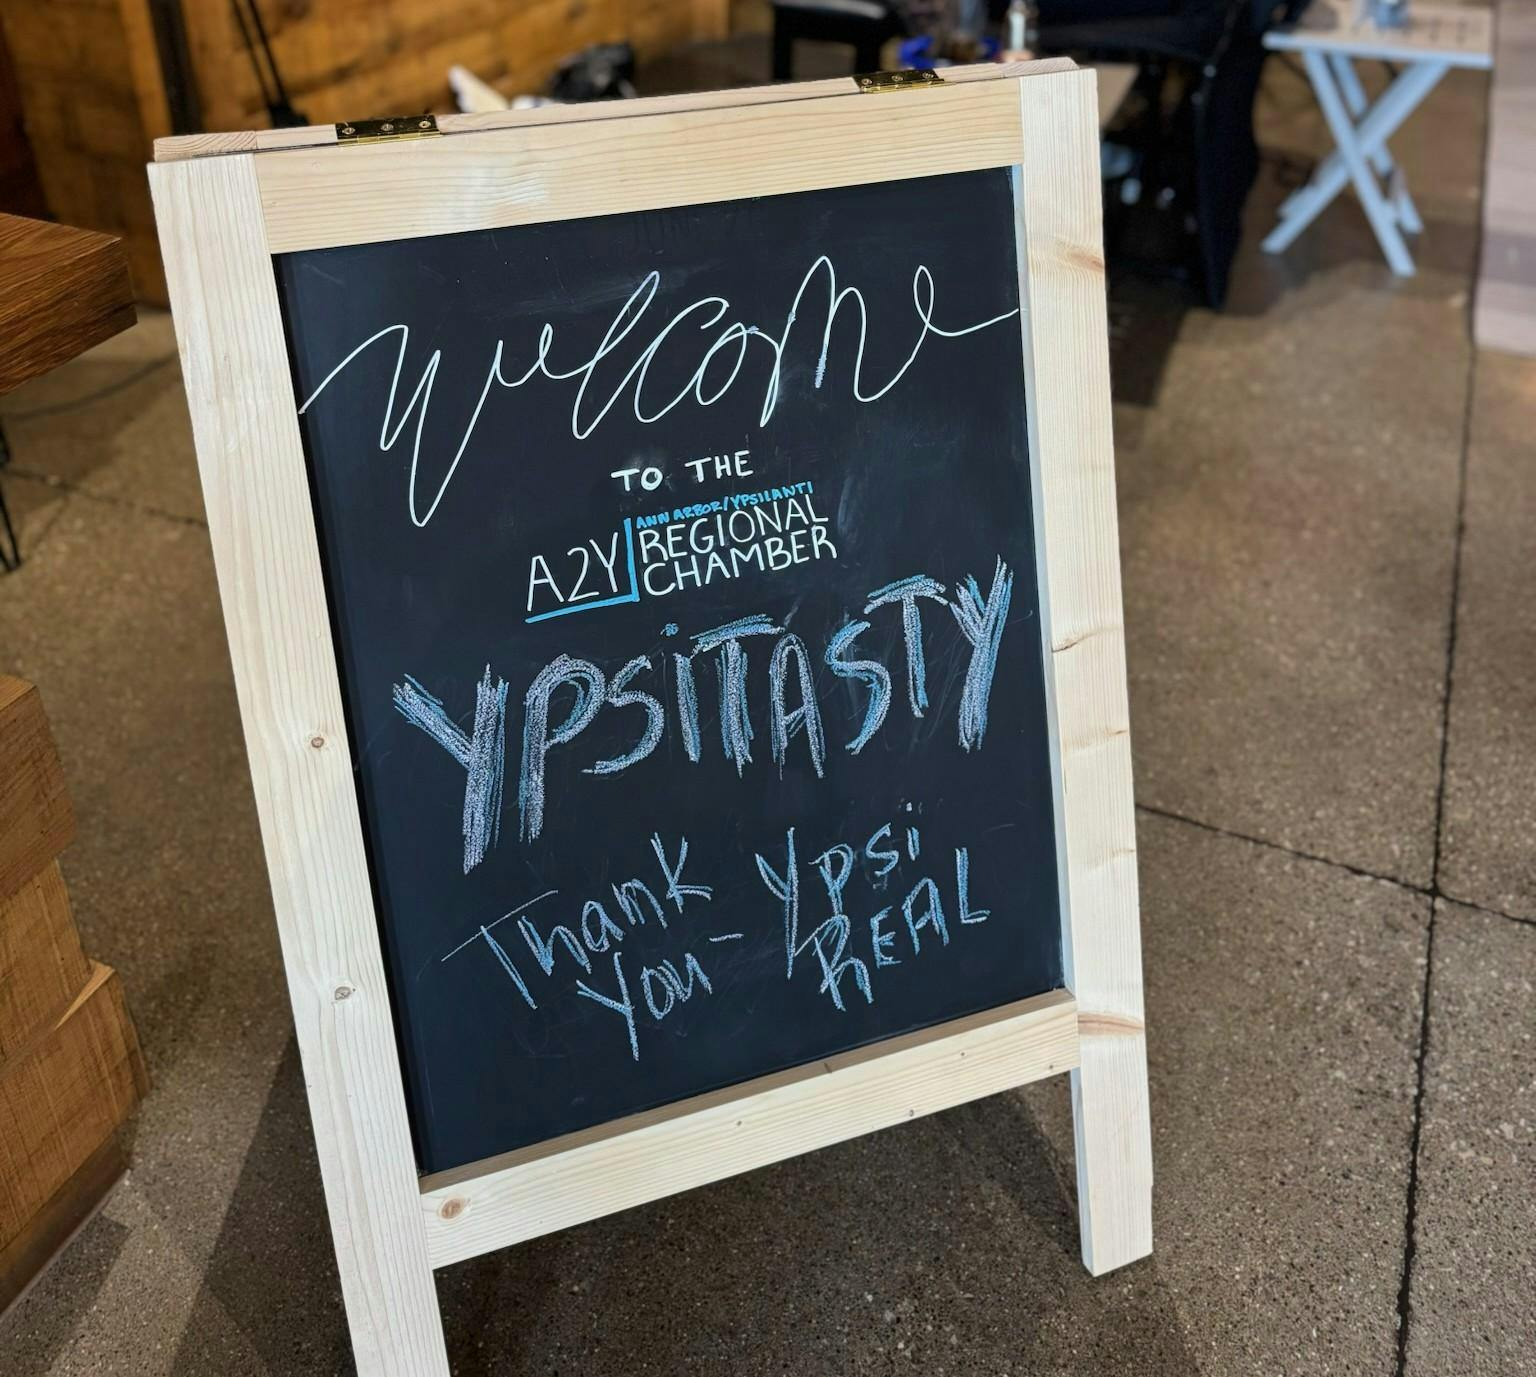 Welcome
TO THE
A2Y ANN ARBOR/YPSILANTI
REGIONAL
CHAMBER
YPSiTASTY
Thank Ypsi
You- REAL